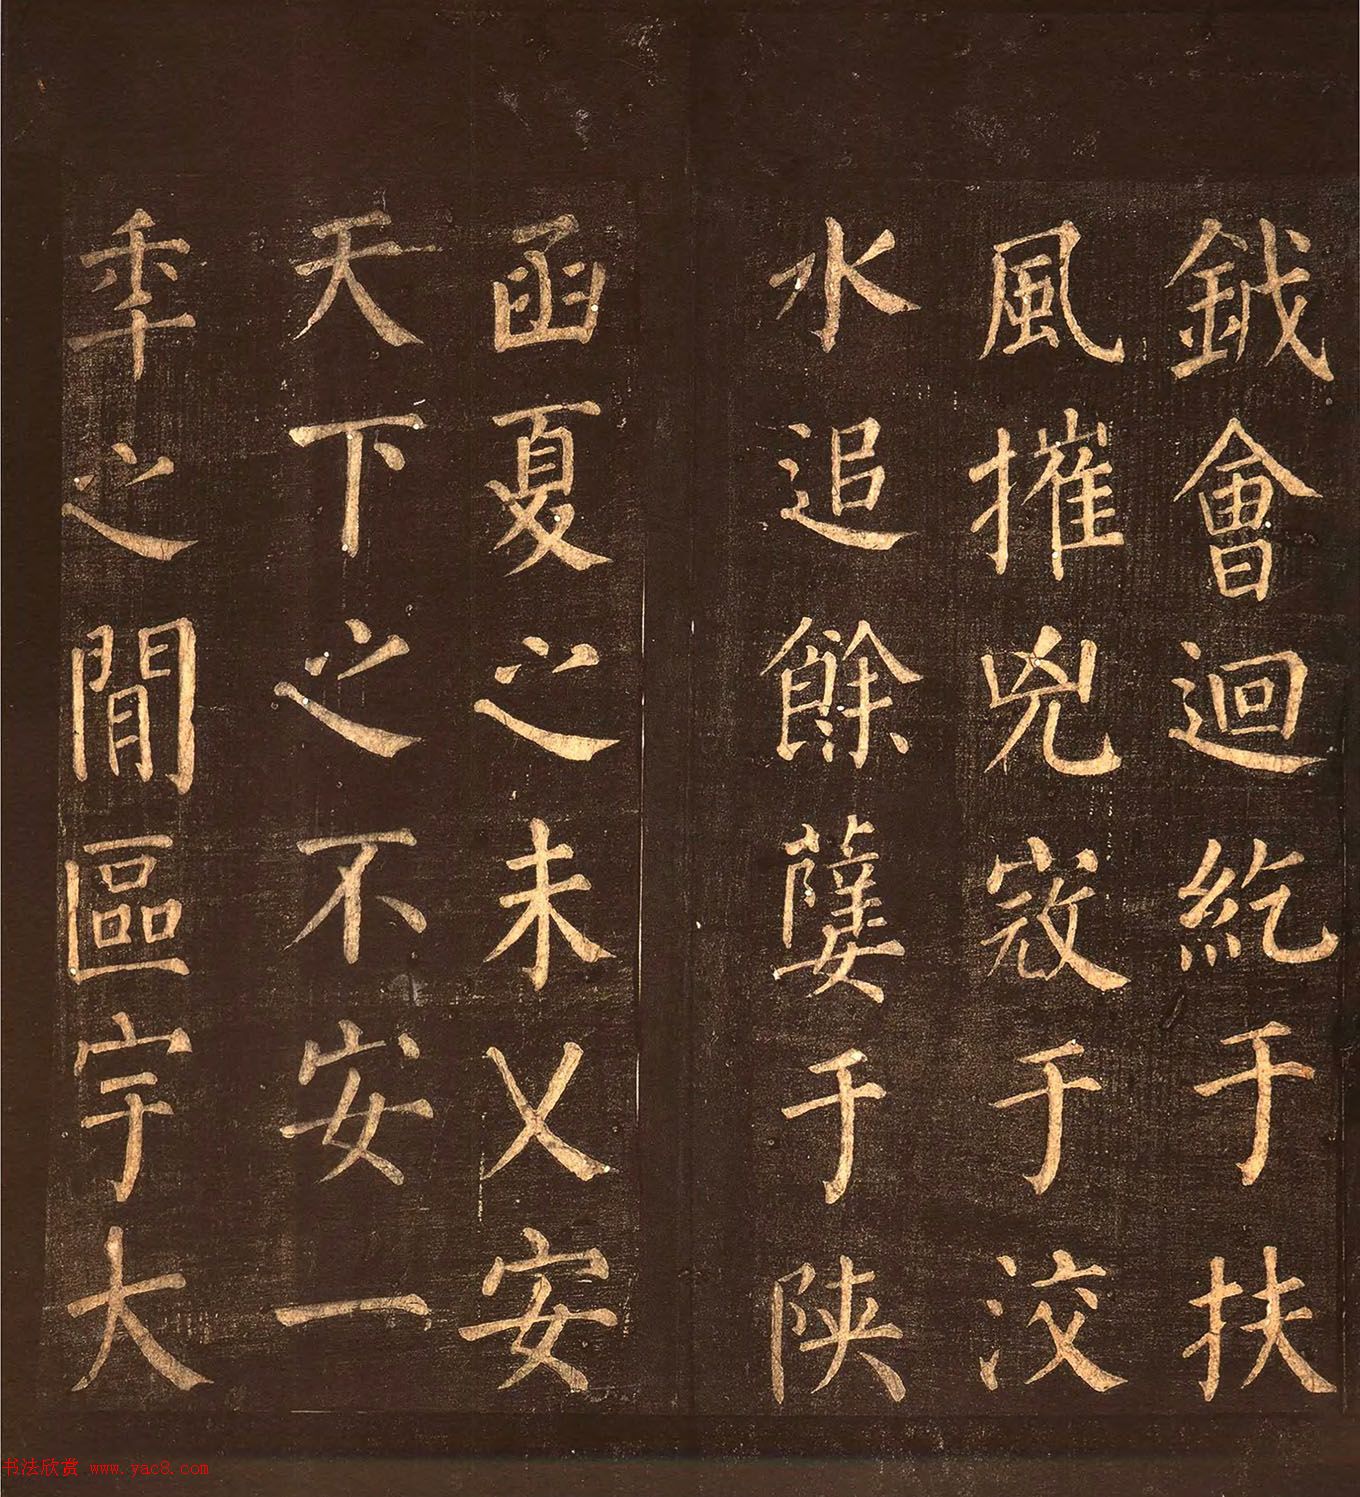 鉞會迴紇于扶
風摧兇寇于洨
水追餘孽于陝
函夏之未乂安
天下之不安一
年之間區宇大
书法欣赏 www.yac8.com